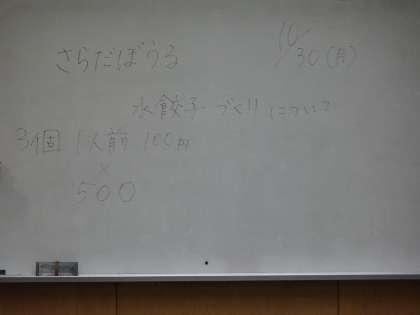 さらだぼうる
10/30(月)
水餃子づくりについて
3個 1人前 100円
×
500